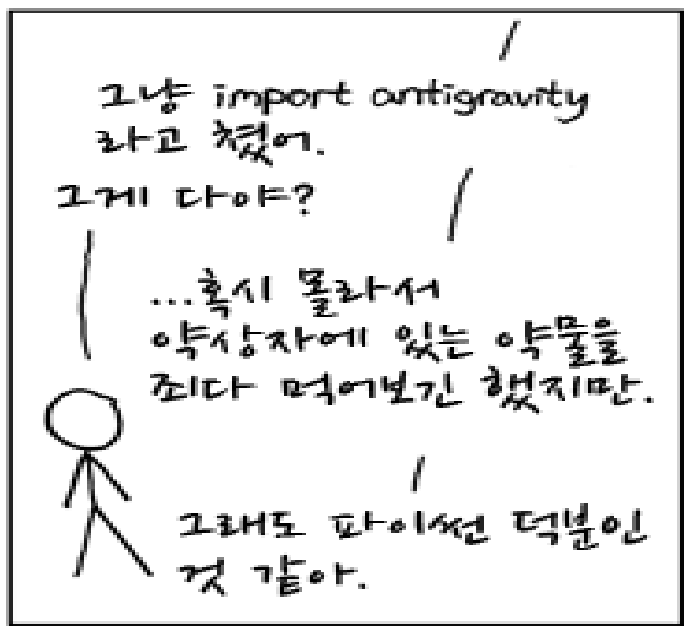 그냥 import antigravity
라고 쳤어.
그게 다야?
...혹시 몰라서
약상자에 있는 약물을
죄다 먹어보긴 했지만.
그래도 파이썬 덕분인
것 같아.